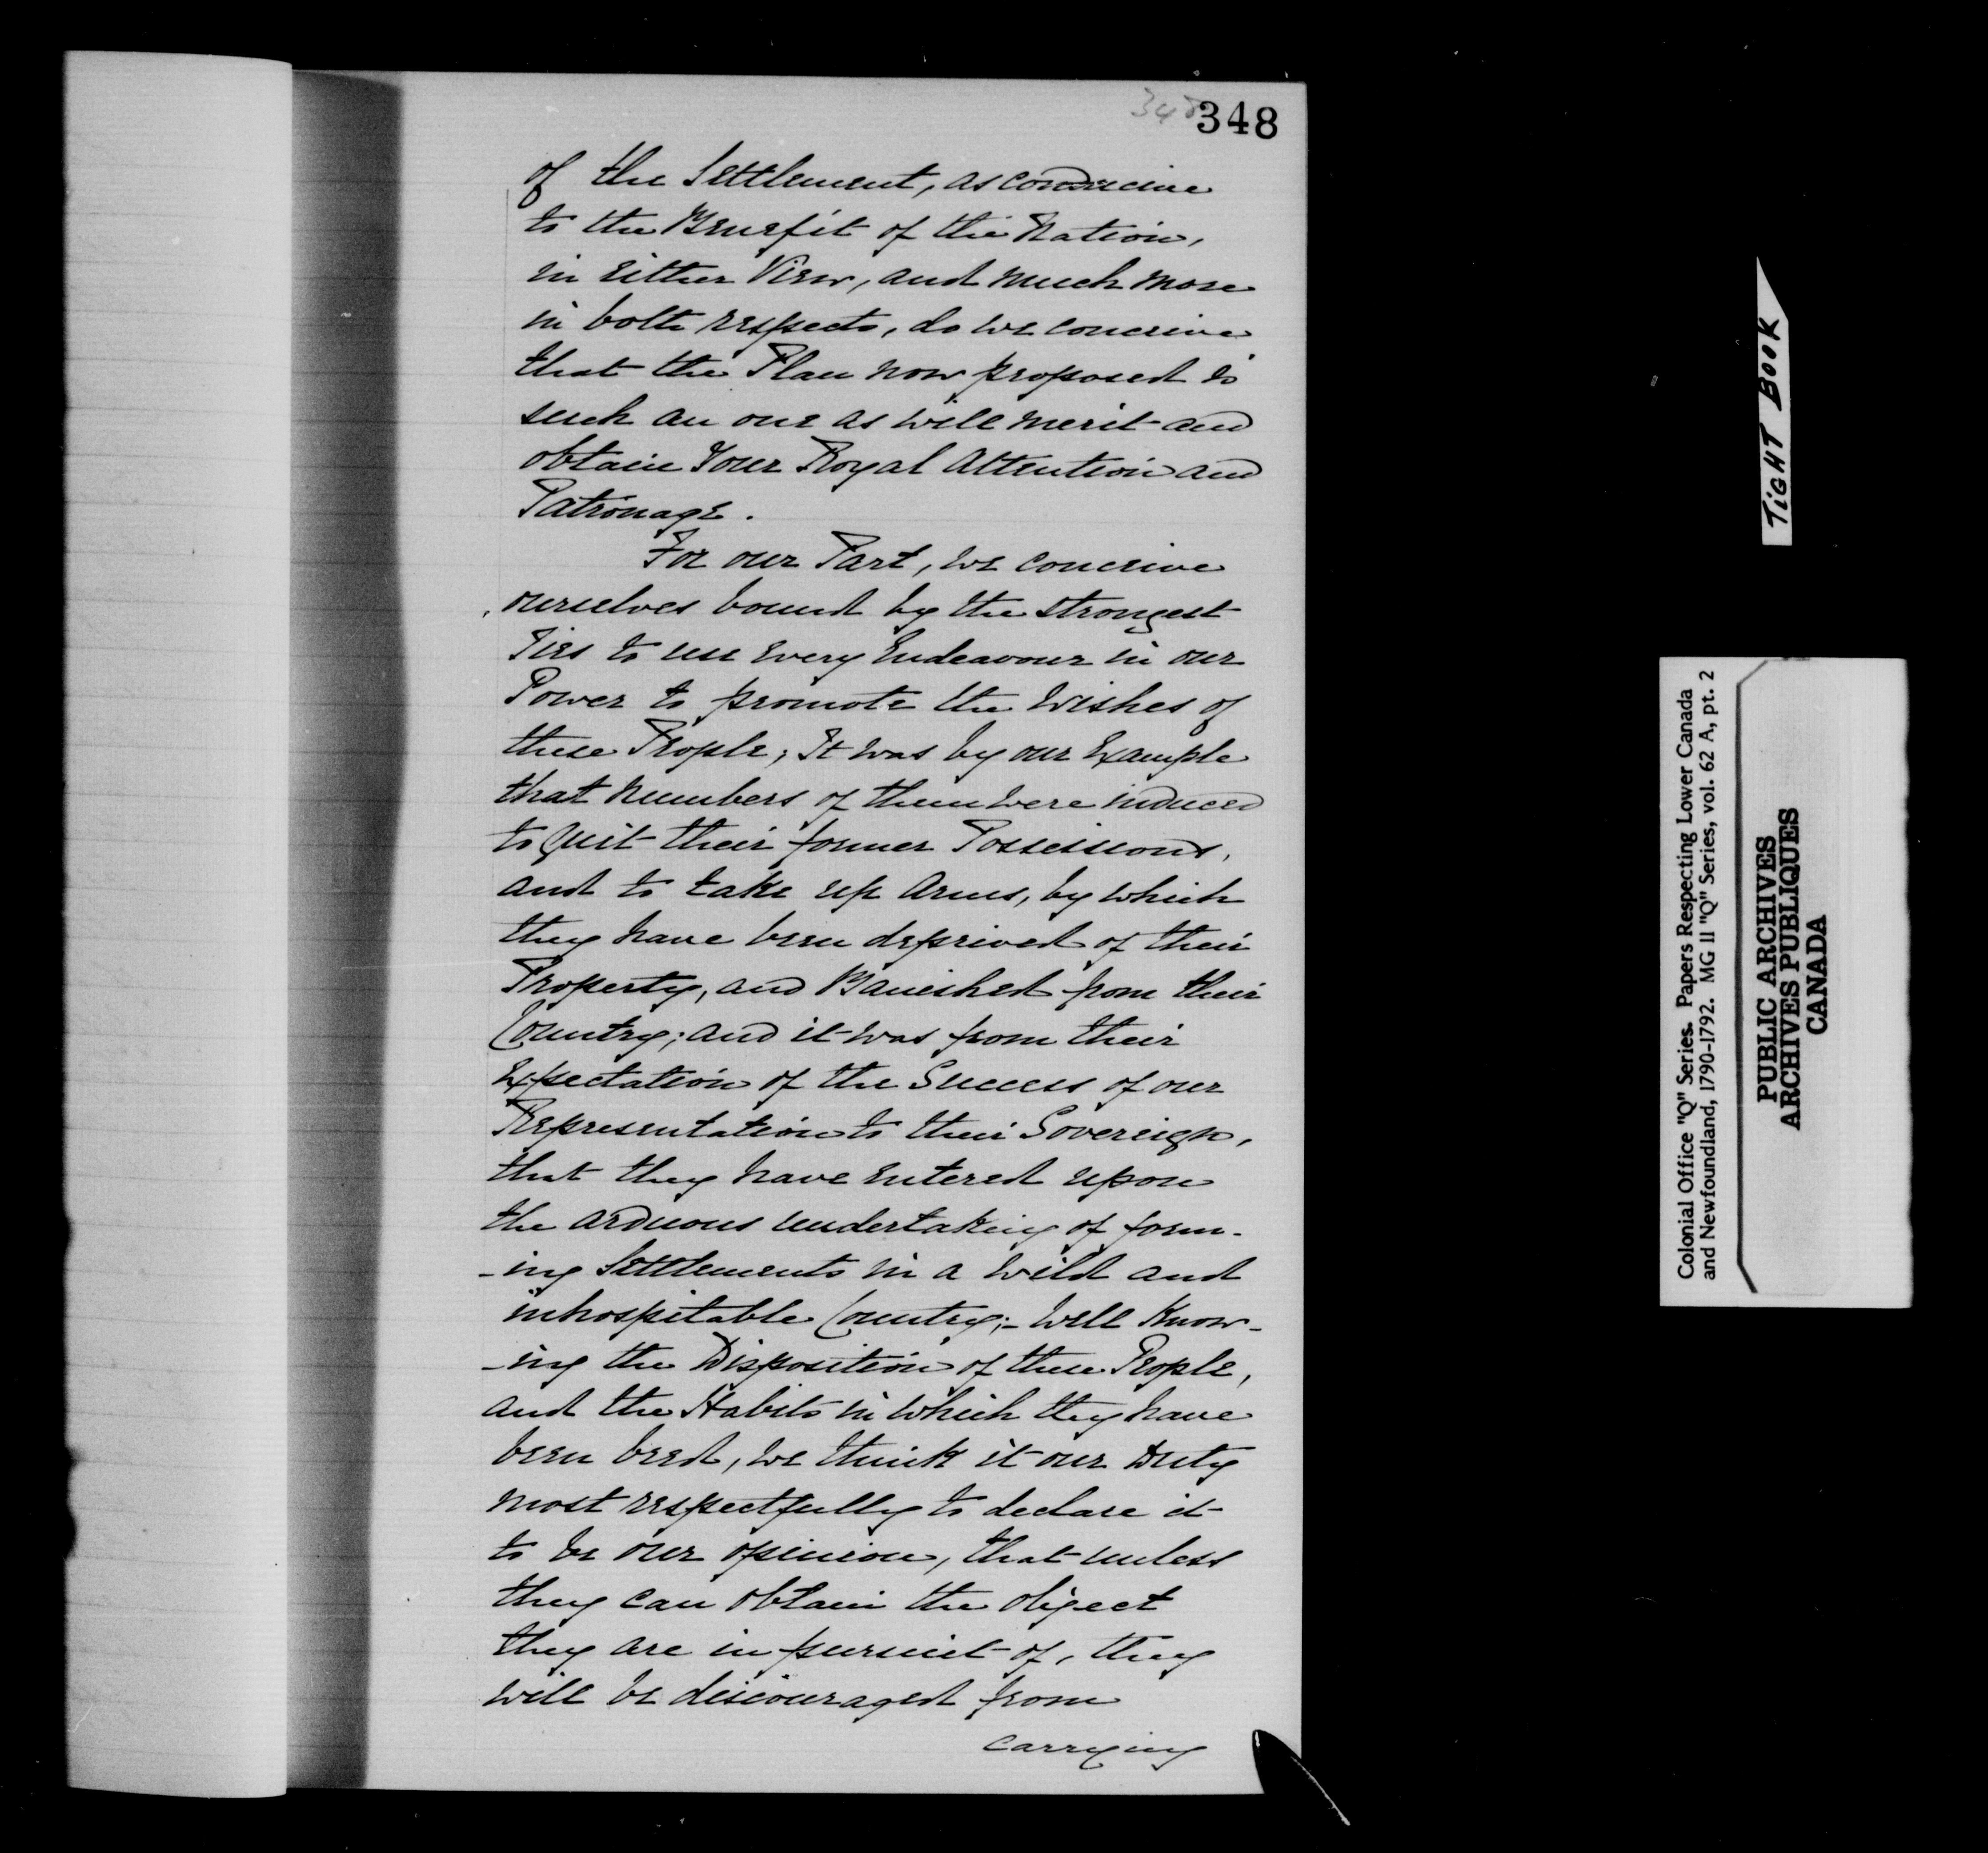 348
348
of the Settlement, as conducive
to the Benefit of the Nation,
in either View, and much more
in both respects, do we conceive
that the Plan now proposed is
such an one as will merit and
obtain Your Royal Attention and
Patronage.
For our Part, we conceive
ourselves bound by the strongest
Ties to use every Endeavour in our
Power to promote the Wishes of
these People; It was by our Example
that numbers of them were induced
to quit their former Possessions,
and to take up Arms, by which
they have been deprived of their
Property, and Banished from their
Country; and it was from their
Expectation of the Success of our
Representation to their Sovereign,
that they have entered upon
the arduous undertaking of form-
-ing Settlements in a wild and
inhospitable Country;- Well Know-
-ing the Disposition of these People,
and the Habits in which they have
been bred, we think it our Duty
most respectfully to declare it
to be our opinion, that unless
they can obtain the object
they are in pursuit of, they
will be discouraged from
carrying
TIGHT BOOK
Colonial Office "Q" Series. Papers Respecting Lower Canada
and Newfoundland, 1790-1792. MG II "Q" Series, vol. 62 A, pt. 2
PUBLIC ARCHIVES
ARCHIVES PUBLIQUES
CANADA